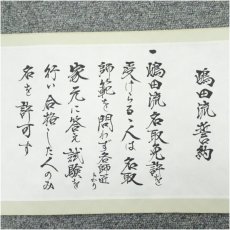 鴻田流誓約
一 鴻田流名取免許を
受けらるゝ人は名取
師範を問わず各師匠より
家元に答え試験を
行い合格した人のみ
名を許可す